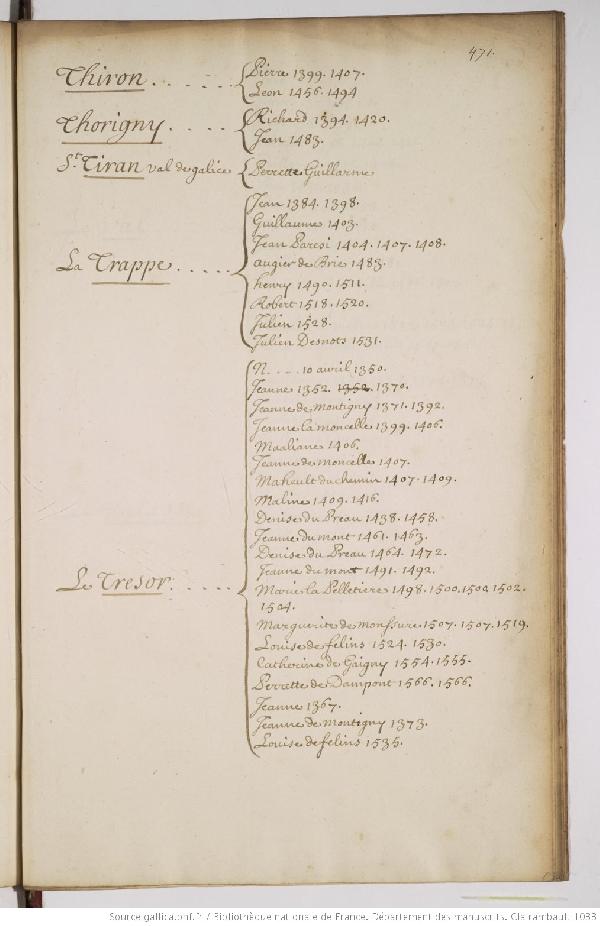 471.
Thiron . . . . .
Pierre 1399. 1407.
Leon 1456. 1494
Thorigny . . . .
Richard 1394. 1420.
Jean 1483.
St. Tiran val de galice
Perrette Guillarme
La Trappe . . . . .
Jean 1384. 1398.
Guillaume 1403.
Jean Paresi 1404. 1407. 1408.
augier de Brie 1483.
henry 1490. 1511.
Robert 1518. 1520.
Julien 1528.
Julien Desnots 1531.
Le Tresor . . . . .
N. . . . 10 avril 1350.
Jeanne 1352. 1352. 1370.
Jeanne de montigny 1371. 1392.
Jeanne la moncelle 1399. 1406.
Maaliane 1406.
Jeanne de moncelle 1407.
Mahault du chemin 1407. 1409.
Maline 1409. 1416.
Denise du Preau 1438. 1458.
Jeanne du mont 1461. 1463.
Denise du Preau 1464. 1472.
Jeanne du mont 1491. 1492.
Marie la Pelletiere 1498. 1500. 1502. 1502.
1504.
Marguerite de monssure 1507. 1507. 1519.
Louise de felins 1524. 1530.
Catherine de Gaigny 1554. 1555.
Perrette de Dampont 1566. 1566.
Jeanne 1367.
Jeanne de montigny 1373.
Louise de felins 1535.
Source gallica.bnf.fr / Bibliothèque nationale de France. Département des manuscrits. Clairambault 1033